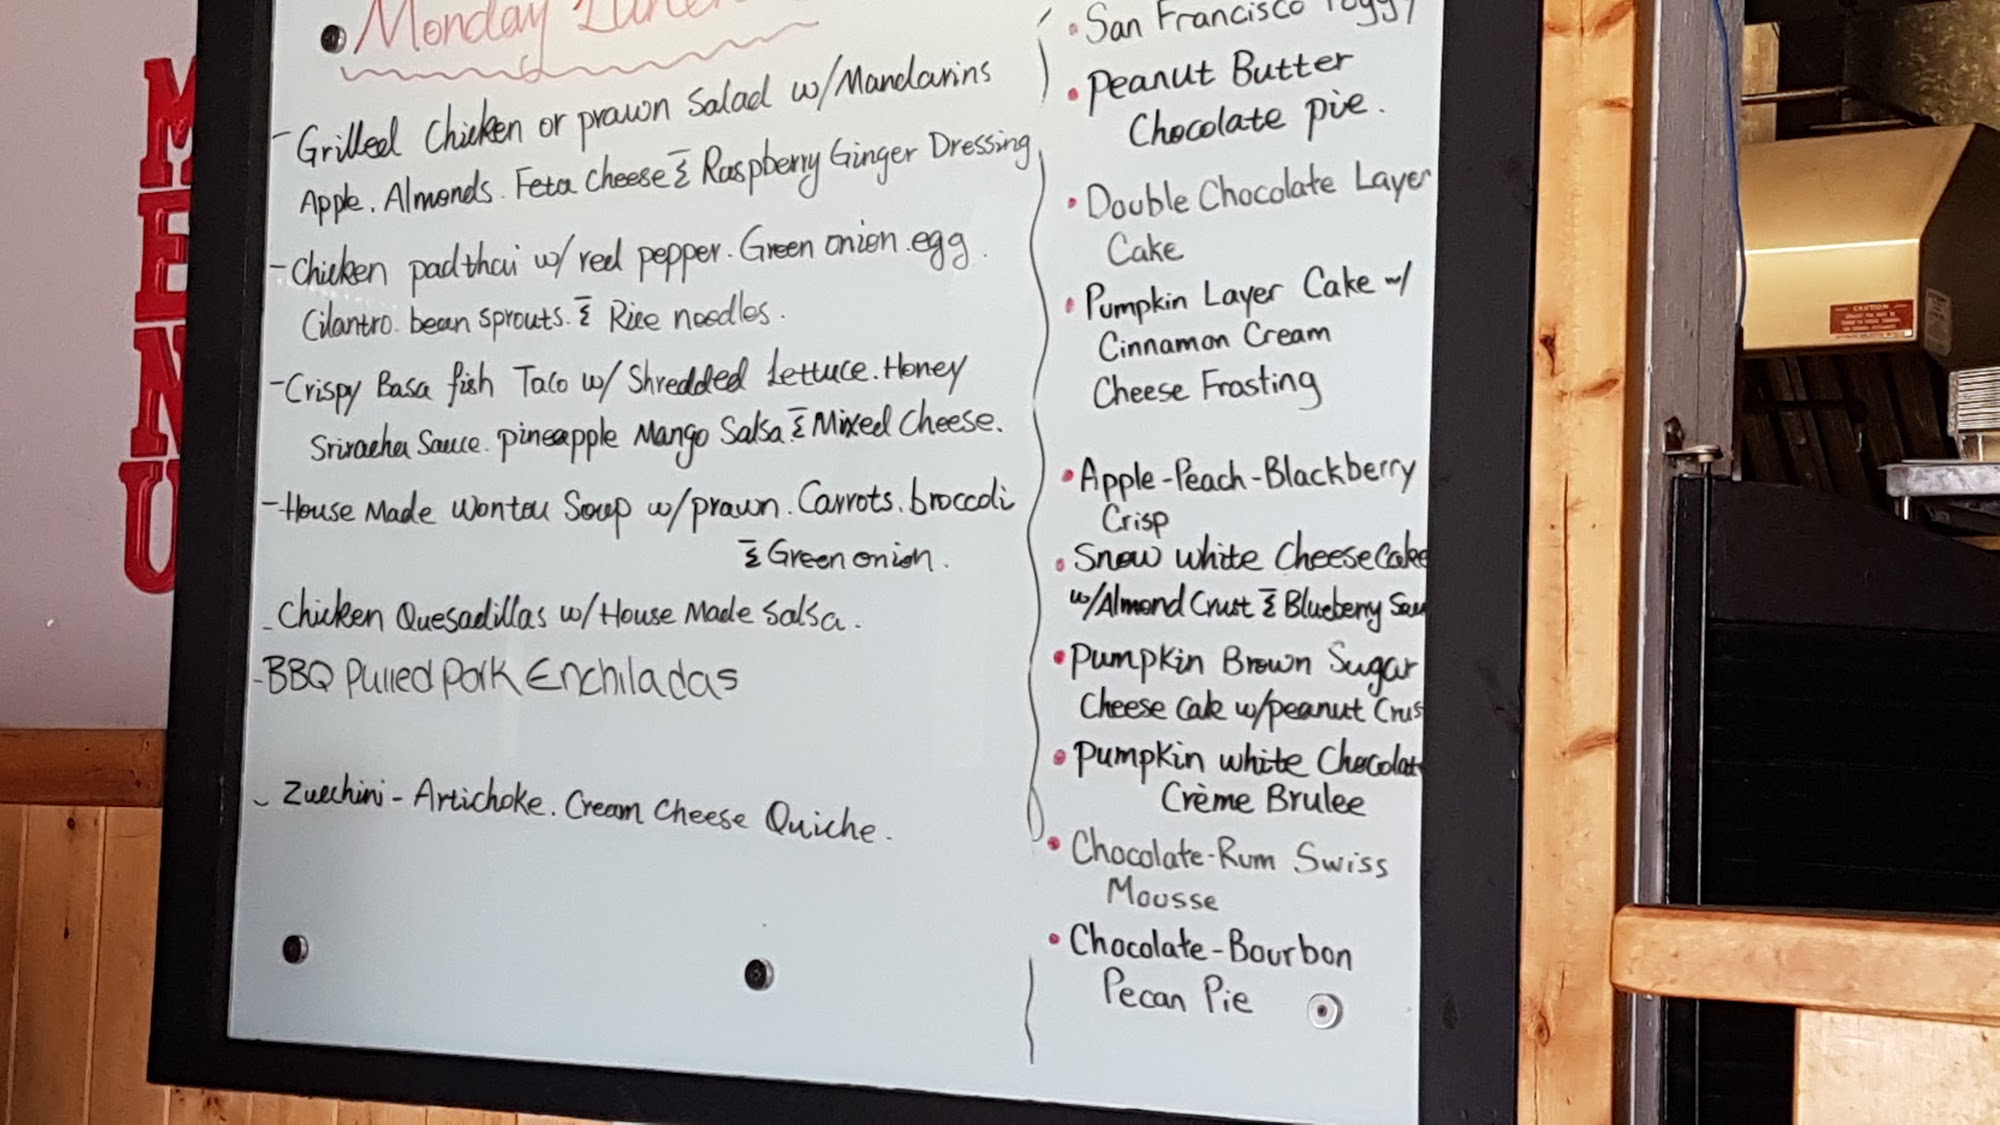 MENU
Monday Lunch
- Grilled Chicken or prawn Salad w/Mandarins
Apple. Almonds. Feta Cheese & Raspberry Ginger Dressing
- Chicken padthai w/ red pepper. Green onion. egg.
Cilantro. bean sprouts. & Rice noodles.
- Crispy Basa fish Taco w/ Shredded Lettuce. Honey
Sriracha Sauce. pineapple Mango Salsa & Mixed Cheese.
- House Made Wonton Soup w/prawn. Carrots. broccoli
& Green onion.
- Chicken Quesadillas w/House Made Salsa.
- BBQ Pulled Pork Enchiladas
- Zucchini - Artichoke. Cream Cheese Quiche.
• San Francisco
• Peanut Butter
Chocolate pie.
• Double Chocolate Layer
Cake
• Pumpkin Layer Cake w/
Cinnamon Cream
Cheese Frosting
• Apple-Peach-Blackberry
Crisp
• Snow white Cheesecake
w/Almond Crust & Blueberry Sau
• Pumpkin Brown Sugar
Cheese Cake w/peanut Crus
• Pumpkin white Chocolat
Crème Brulee
• Chocolate-Rum Swiss
Mousse
• Chocolate-Bourbon
Pecan Pie
CAUTION